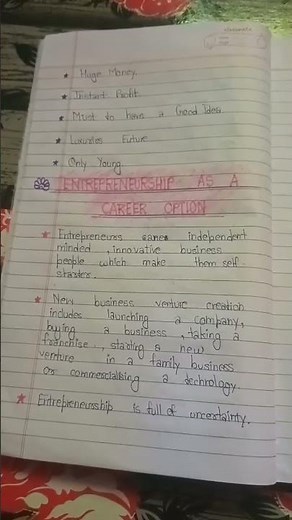 ★ Huge Money.
★ Instant Profit
★ Must to have a Good Idea
★ Luxuries Future
★ Only Young
ENTREPRENEURSHIP AS A
CAREER OPTION
★ Entrepreneurs independent
minded, innovative business
people which make them self
starter.
★ New business venture creation
includes launching a company,
buying a business, taking a
franchise, starting a new
venture in a family business
or commercialising a technology.
★ Entrepreneurship is full of uncertainty.